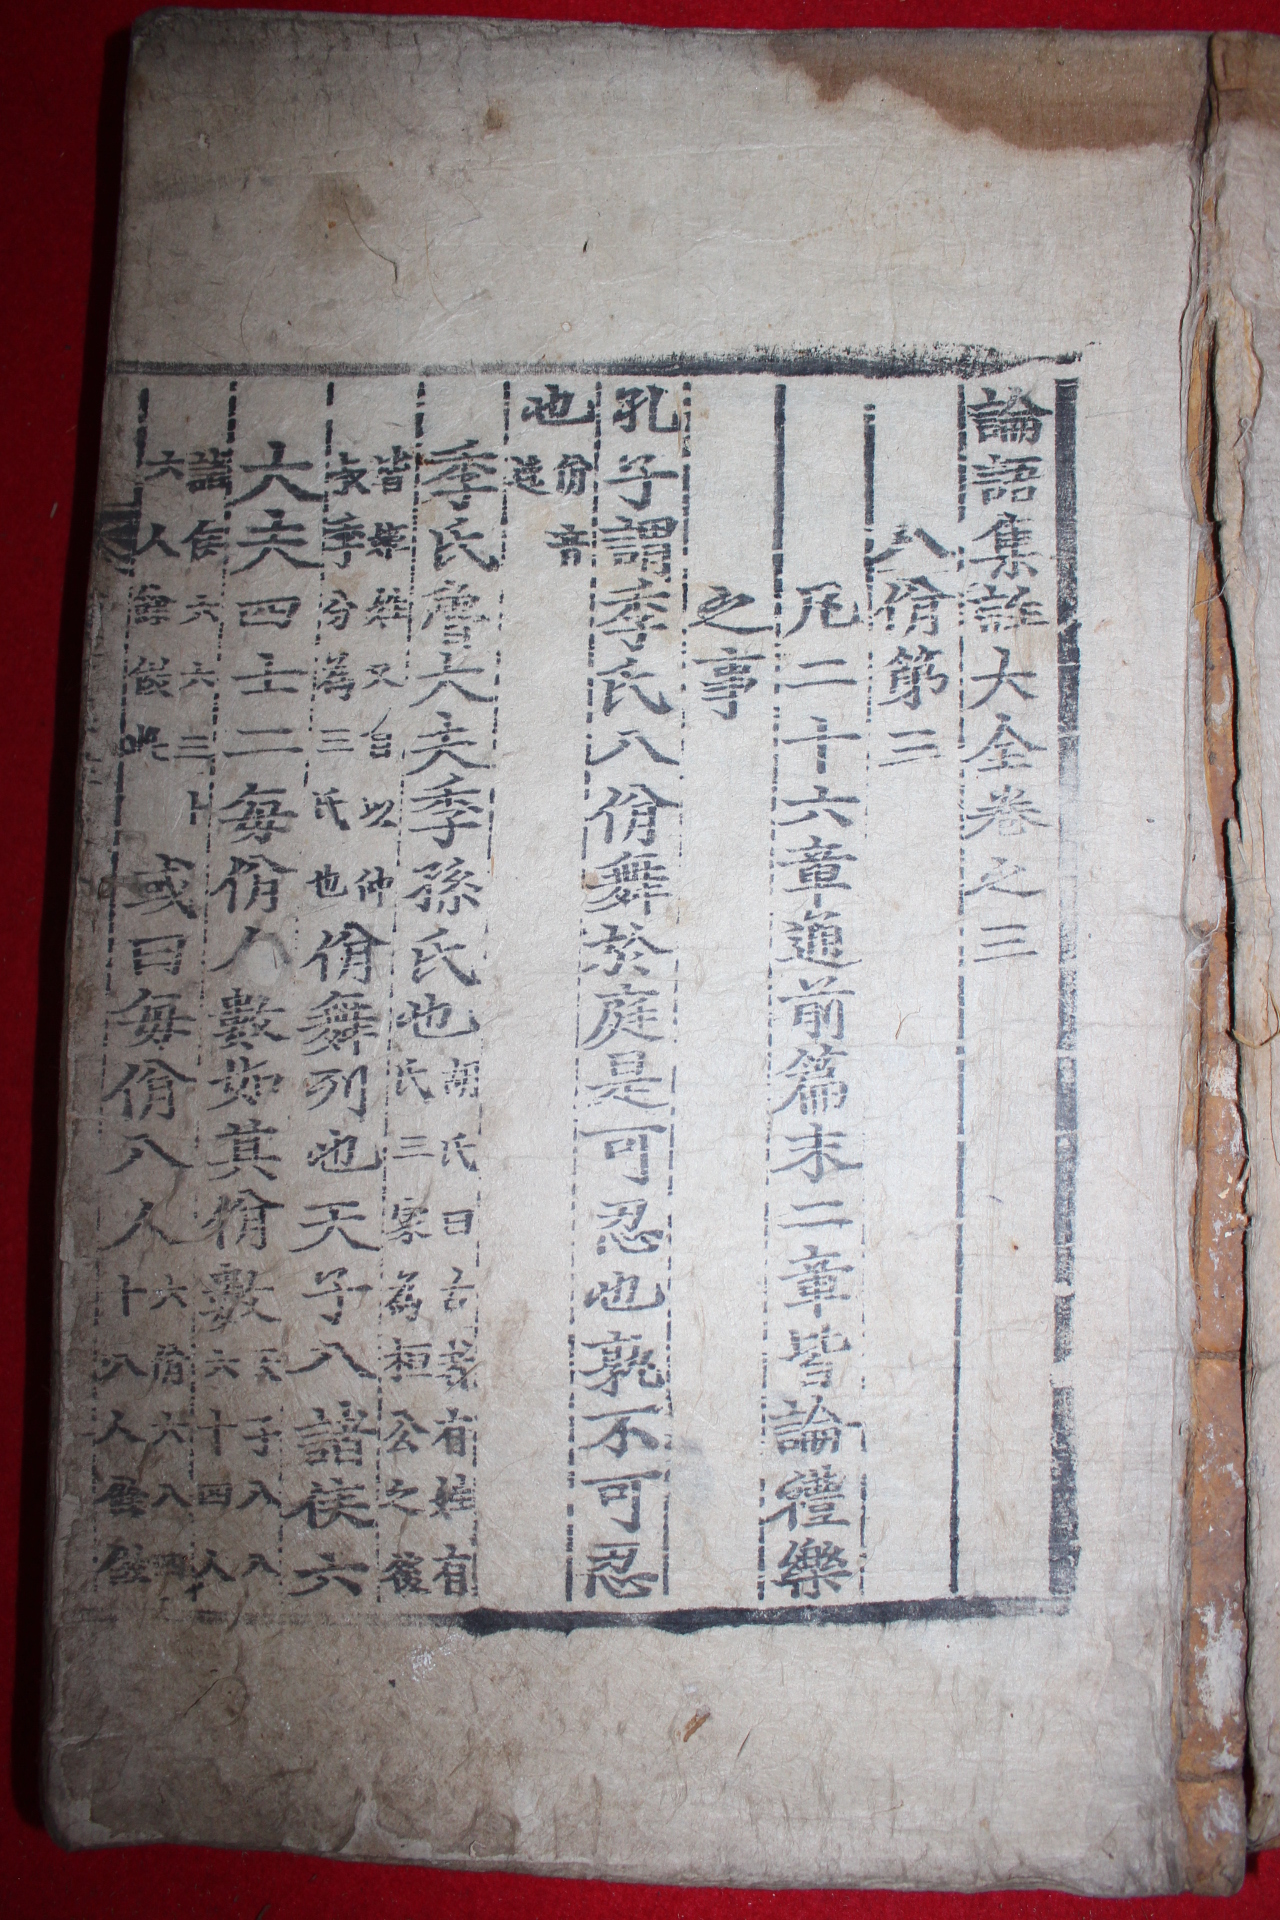 論語集註大全卷之三
八佾第三
凡二十六章通前篇末二章皆論禮樂
之事
孔子謂季氏八佾舞於庭是可忍也孰不可忍
也佾音逸
季氏魯大夫季孫氏也胡氏曰古者有姓有氏三家為桓公之後
皆姬姓又自以仲叔季分為三氏也佾舞列也天子八諸侯六
大夫四士二每佾人數如其佾數天子八八六十四人
諸侯六六三十六人餘倣此或曰每佾八人六佾六八四十八人餘倣